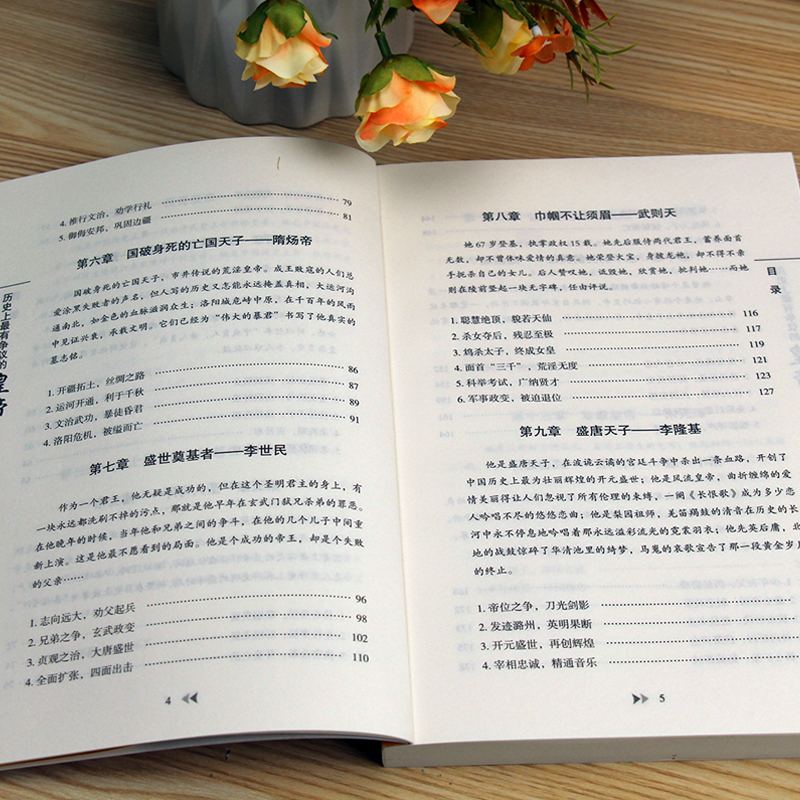 4. 推行文治，劝学行礼 79
5. 御侮安邦，巩固边疆 81
第六章 国破身死的亡国天子——隋炀帝
国破身死的亡国天子，市井传说的荒淫皇帝。成王败寇的人们总
爱涂黑失败者的声名，但人写的历史又怎能永远掩盖真相。大运河沟
通南北，如金色的血脉滋润众生；洛阳城危峙中原，在千百年的风雨
中见证兴衰，承载文明。它们已经为“伟大的暴君”书写了他真实的
墓志铭。
86
1. 开疆拓土，丝绸之路 87
2. 运河开通，利于千秋 89
3. 文治武功，暴徒昏君 91
4. 洛阳危机，被缢而亡
第七章 盛世奠基者——李世民
作为一个君王，他无疑是成功的，但在这个圣明君主的身上，有
一块永远都洗刷不掉的污点，那就是他早年在玄武门弑兄杀弟的罪恶。
在他晚年的时候，当年他和兄弟之间的争斗，在他的几个儿子中间重
新上演。这是他最不愿看到的局面。他是个成功的帝王，却是个失败
的父亲……
1. 志向远大，劝父起兵 96
2. 兄弟之争，玄武政变 98
3. 贞观之治，大唐盛世 102
4. 全面扩张，四面出击 110
4
历史上最有争议的
皇帝
第八章 巾帼不让须眉——武则天
她 67 岁登基，执掌政权 15 载。她先后服侍两代君王，蓄养面首
无数，却不曾体味爱情的真意。她荣登大宝，身披龙袍，却不得不亲
手扼杀自己的女儿。后人赞叹她，诋毁她，欣赏她，批判她……而她
则在陵前竖起一块无字碑，任由评说。
1. 聪慧绝顶，貌若天仙 116
2. 杀女夺后，残忍至极 117
3. 鸩杀太子，终成女皇 119
4. 面首“三千”，荒淫无度 121
5. 科举考试，广纳贤才 123
6. 军事政变，被迫退位 127
第九章 盛唐天子——李隆基
他是盛唐天子，在波诡云谲的宫廷斗争中杀出一条血路，开创了
中国历史上最为壮丽辉煌的开元盛世；他是风流皇帝，曲折缠绵的爱
情美丽得让人们忽视了所有伦理的束缚，一阕《长恨歌》成为多少恋
人吟唱不尽的悠悠恋曲；他是梨园祖师，羌笛羯鼓的清音在历史的长
河中永不停息地吟唱着那永远溢彩流光的霓裳羽衣；他先英后庸，北
地的战鼓惊碎了华清池里的绮梦，马嵬的哀歌宣告了那一段黄金岁月
的终止。
1. 帝位之争，刀光剑影
2. 发迹潞州，英明果断
3. 开元盛世，再创辉煌
4. 宰相忠诚，精通音乐
5
目录